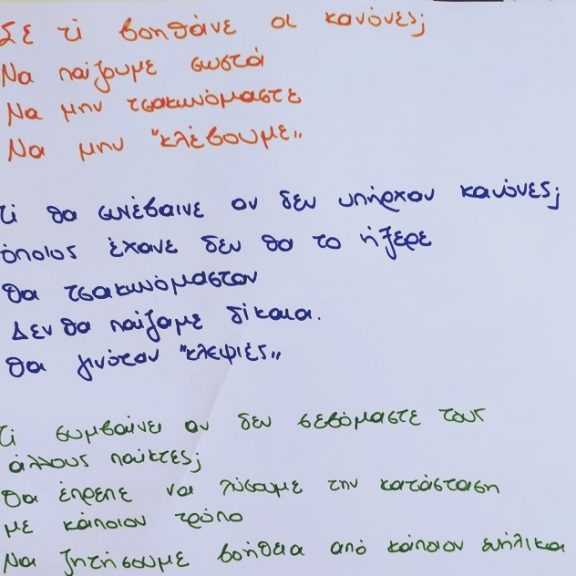 Σε τι βοηθάνε οι κανόνες;
Να παίζουμε σωστά
Να μην τσακωνόμαστε
Να μην "κλέβουμε"
Τι θα συνέβαινε αν δεν υπήρχαν κανόνες;
όποιος έχανε δεν θα το ήξερε
Θα τσακωνόμασταν
Δεν θα παίζαμε δίκαια.
Θα γινόταν "κλεψιές"
Τι συμβαίνει αν δεν σεβόμαστε τους
άλλους παίκτες;
Θα έπρεπε να λύσουμε την κατάσταση
με κάποιον τρόπο
Να ζητήσουμε βοήθεια από κάποιον ενήλικα